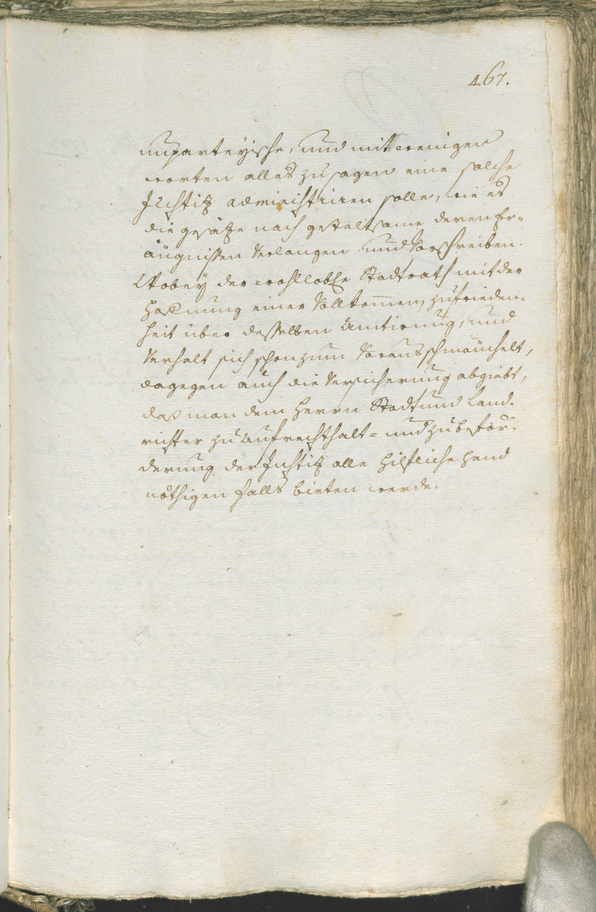 467.
unparteyische, und mit wenigen
worten alles zu sagen eine solche
Justitz administriren solle, wie es
die gesätze nach gestaltsame deren Er-
äugnissen verlangen und vorschreiben.
Wobey der wohllobe Stadtrath mit der
hofnung einer vollkommen zufrieden-
heit über desselben Amtirung, und
verhalt sich schon zum voraus schmäuchelt,
dagegen auch die versicherung abgiebt,
daß man dem Herrn Stadt und Land-
richter zu aufrechthalt- und zu beför-
derung der Justitz alle hilfliche hand
nöthigen falls bieten werde.